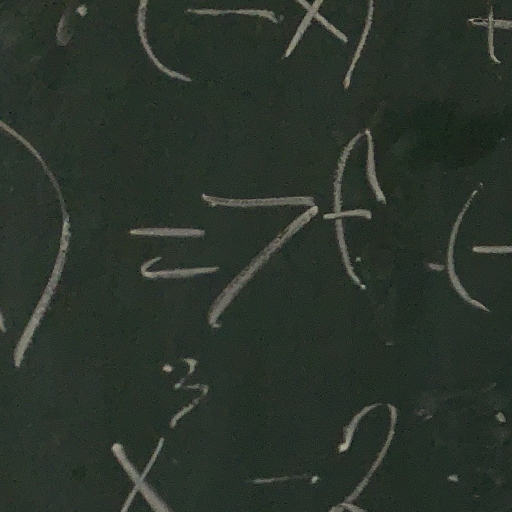 (-x) +
) => f(-
x³ - 2